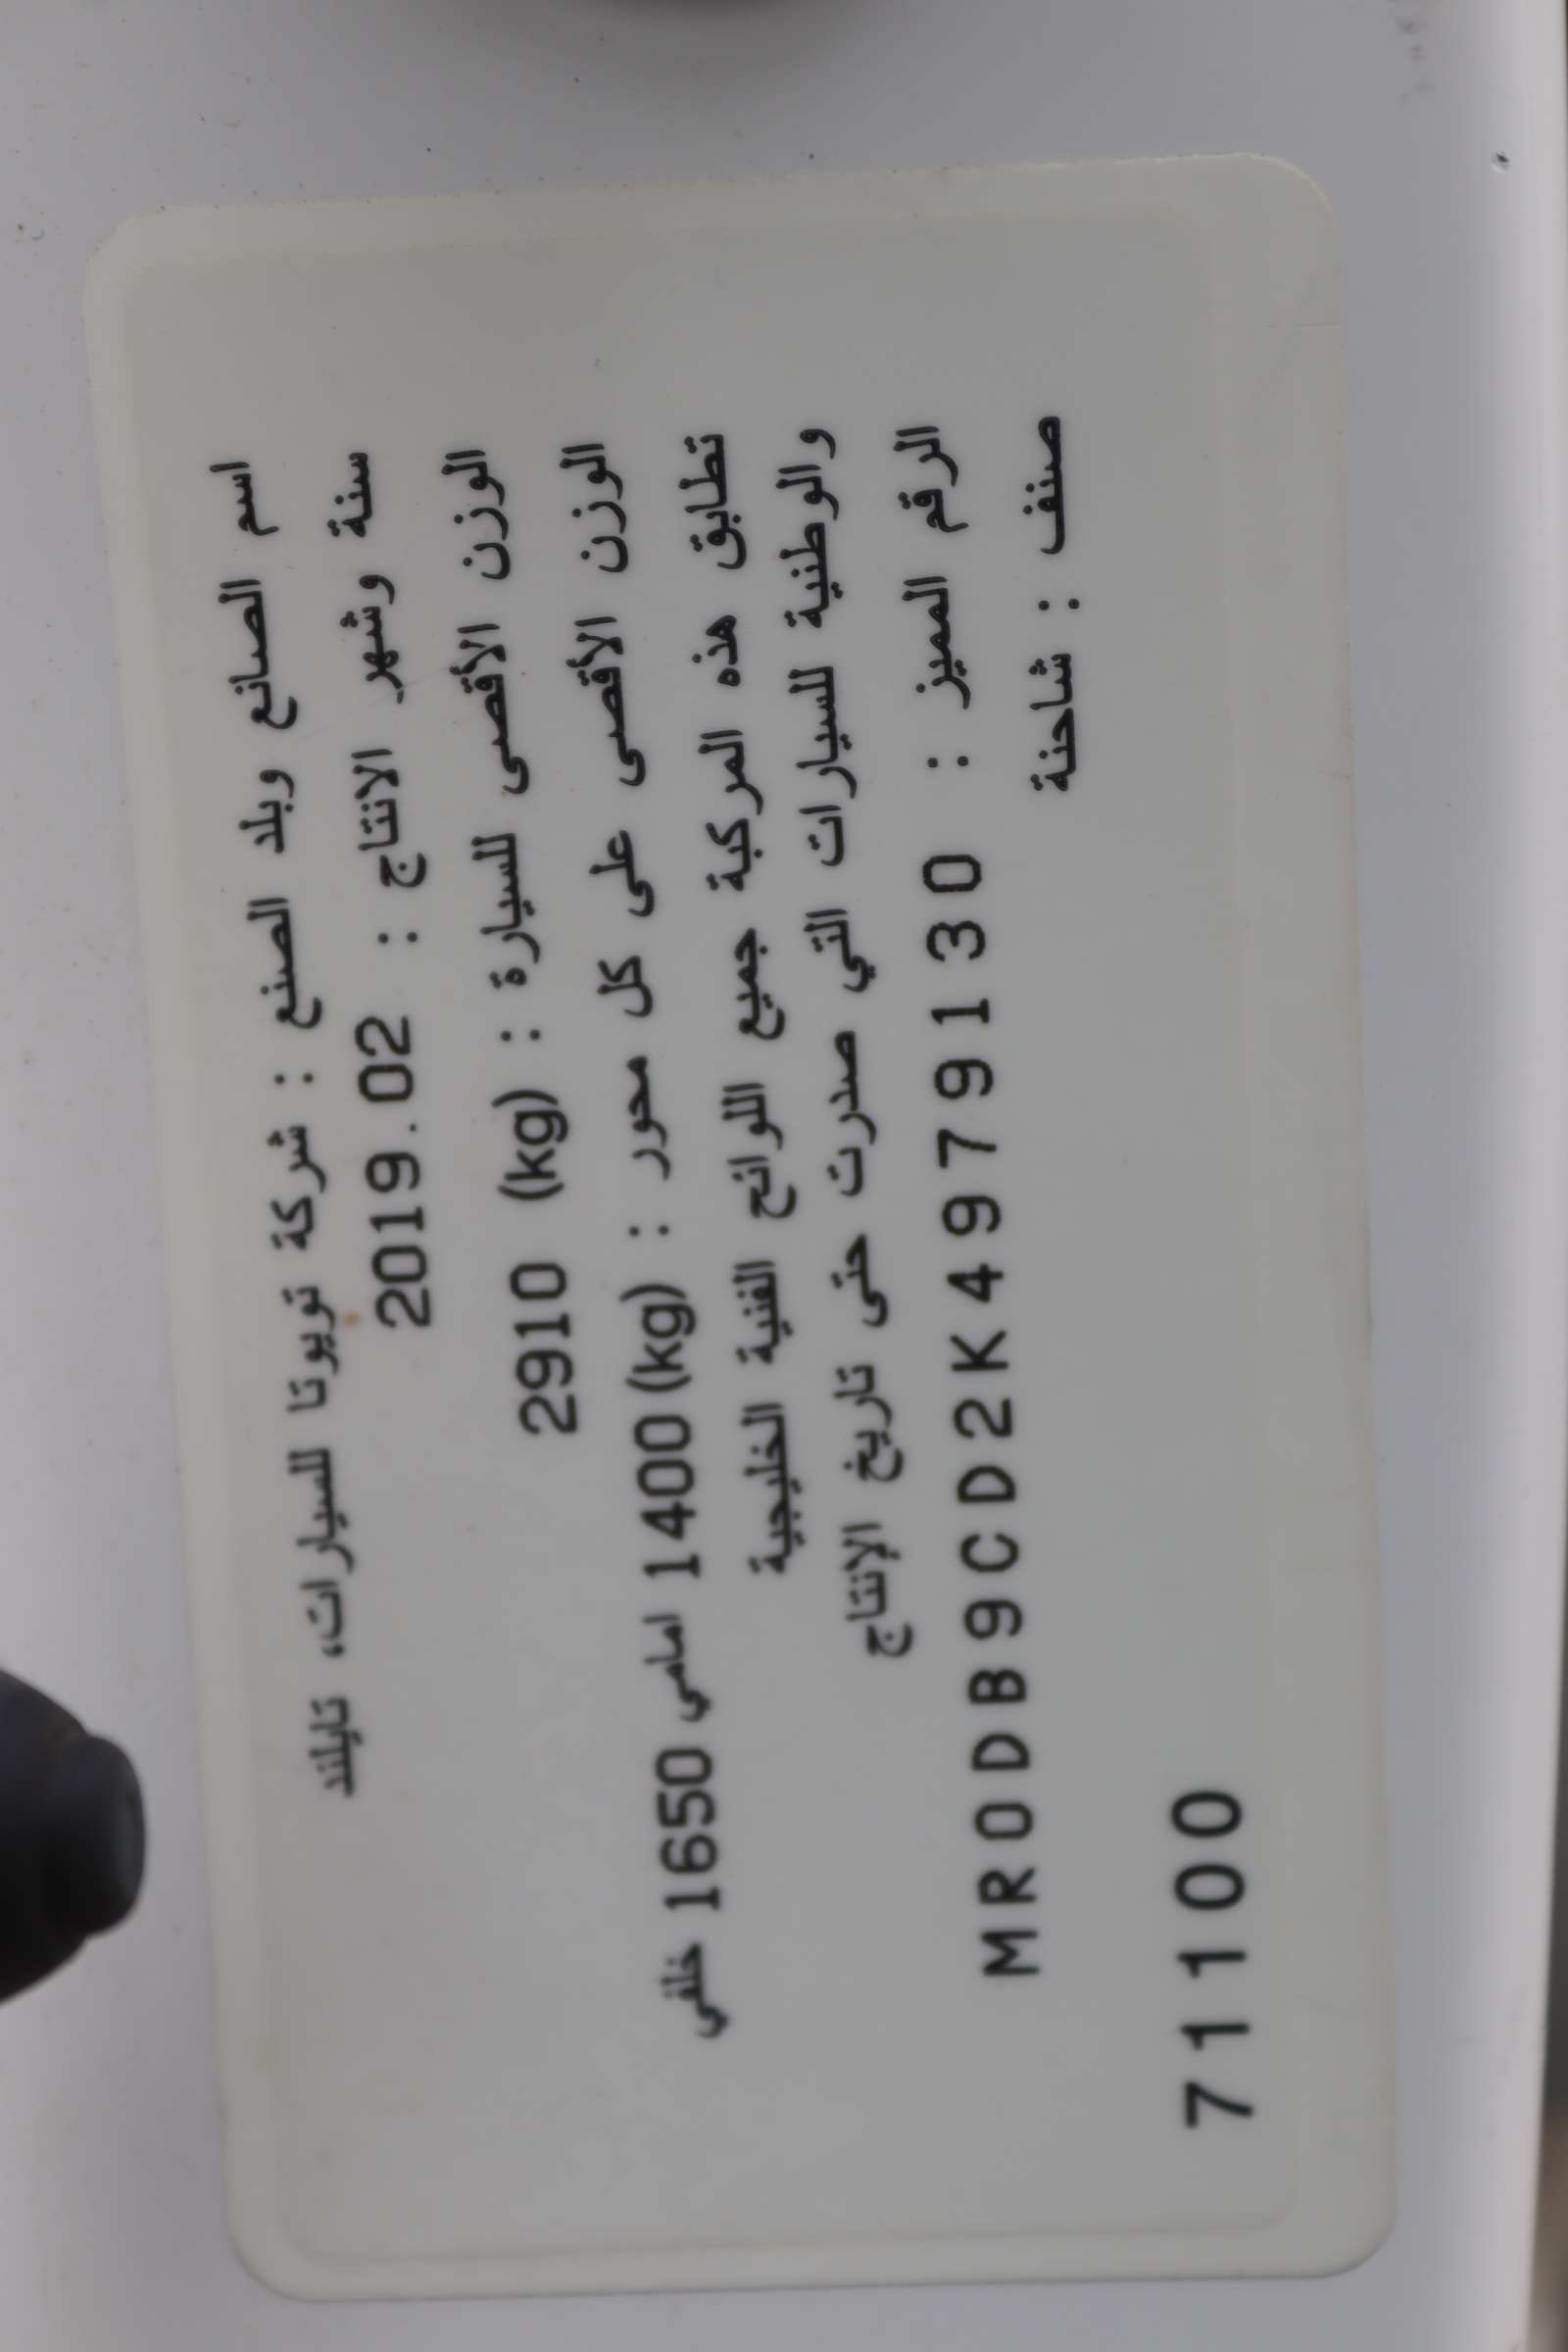 اسم الصانع وبلد الصنع : شركة تويوتا للسيارات، تايلند
سنة وشهر الانتاج : 2019.02
الوزن الأقصى للسيارة : (kg) 2910
الوزن الأقصى على كل محور : (kg) 1400 امامي 1650 خلفي
تطابق هذه المركبة جميع اللوائح الفنية الخليجية
والوطنية للسيارات التي صدرت حتى تاريخ الإنتاج
الرقم المميز : MR0DB9CD2K4979130
صنف : شاحنة
71100